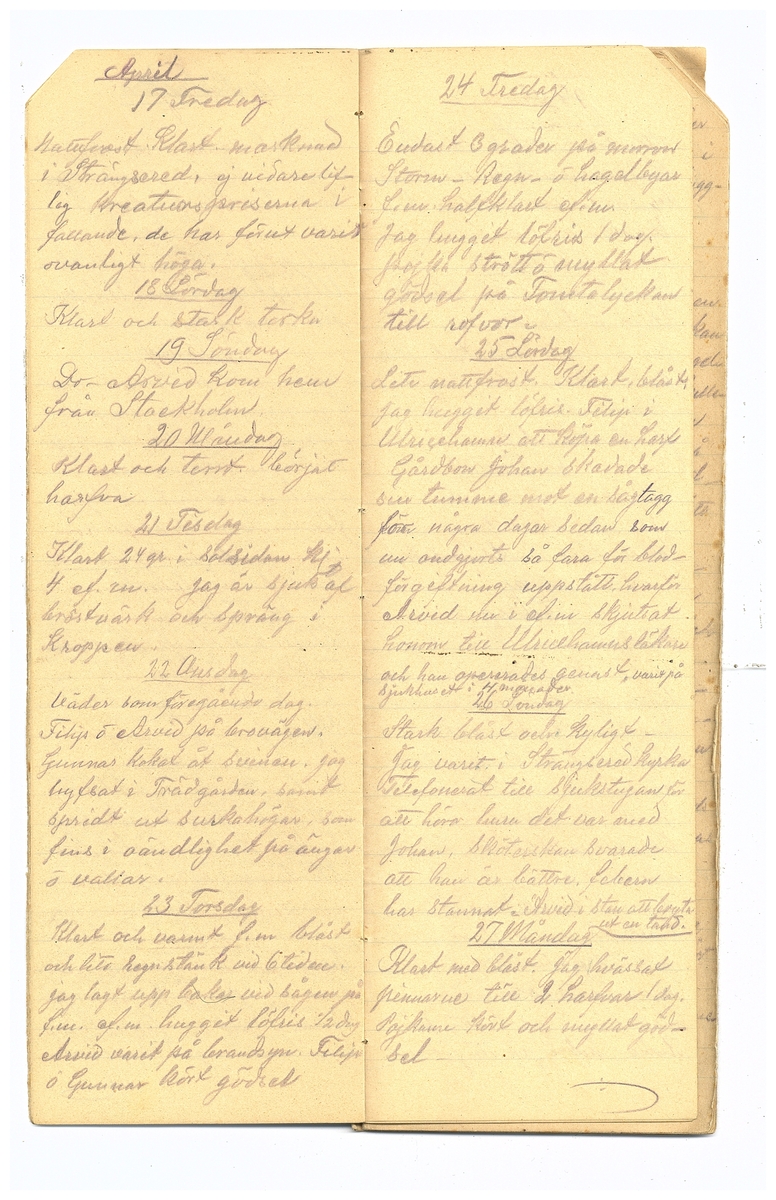 April
17 Fredag
Nattfrost. Klart. marknad
i Strängsered, ej vidare lif-
lig Kreaturspriserna i
fallande, de har förut varit
ovanligt höga.
18 Lördag
Klart och stark torka
19 Söndag
Do- Arvid kom hem
från Stockholm
20 Måndag
Klart och torrt. börjat
harfva
21 Tisdag
Klart 24 gr. i solsidan kl
4 ef. m. jag är sjuk af
bröstvärk och spräng i
Kroppen.
22 Onsdag
Väder som föregående dag.
Filip ö Arvid på brovägen.
Gunnar kokat åt svinen. jag
hyfsat i Trädgården, samt
spridt ut surkahögar, som
fins i oändlighet på ängar
ö vallar.
23 Torsdag
Klart och varmt f.m blåst
och lite regnstänk vid 6 tiden.
jag lagt upp bakar vid sågen på
f.m. ef.m. hugget löfris 1/2 dag
Arvid varit på brandsyn. Filip
ö Gunnar kört gödsel
24 Fredag
Endast 3 grader på morron
Storm- Regn- ö hagelbyar
f.m. halfklart ef.m.
Jag hugget löfris 1 dag.
pojka strött ö myllat
gödsel på Tomtalyckan
till rofvor.
25 Lördag
Lite nattfrost. Klart, blåst,
jag hugget löfris. Filip i
Ulricehamn att köpa en harf
Gårdbon Johan skadade
sin tumme mot en sågtagg
för några dagar sedan som
nu ondgjorts så fara för blod-
förgiftning uppstått. hvarför
Arvid nu i ef.m skjutsat
honom till Ulricehamns läkare
och han opererades genast, varit på
sjukhuset i 4 månader
26 Söndag
Stark blåst och kyligt -
Jag varit i Strängsered kyrka
Telefonerat till sjukstugan för
att höra huru det var med
Johan, sköterskan svarade
att han är bättre, febern
har stannat. Arvid i stan att bryta
ut en tand.
27 Måndag
Klart med blåst. Jag hvässat
pinnarne till 2 harfvar 1 dag.
Pojkarne kört och myllat göd-
sel